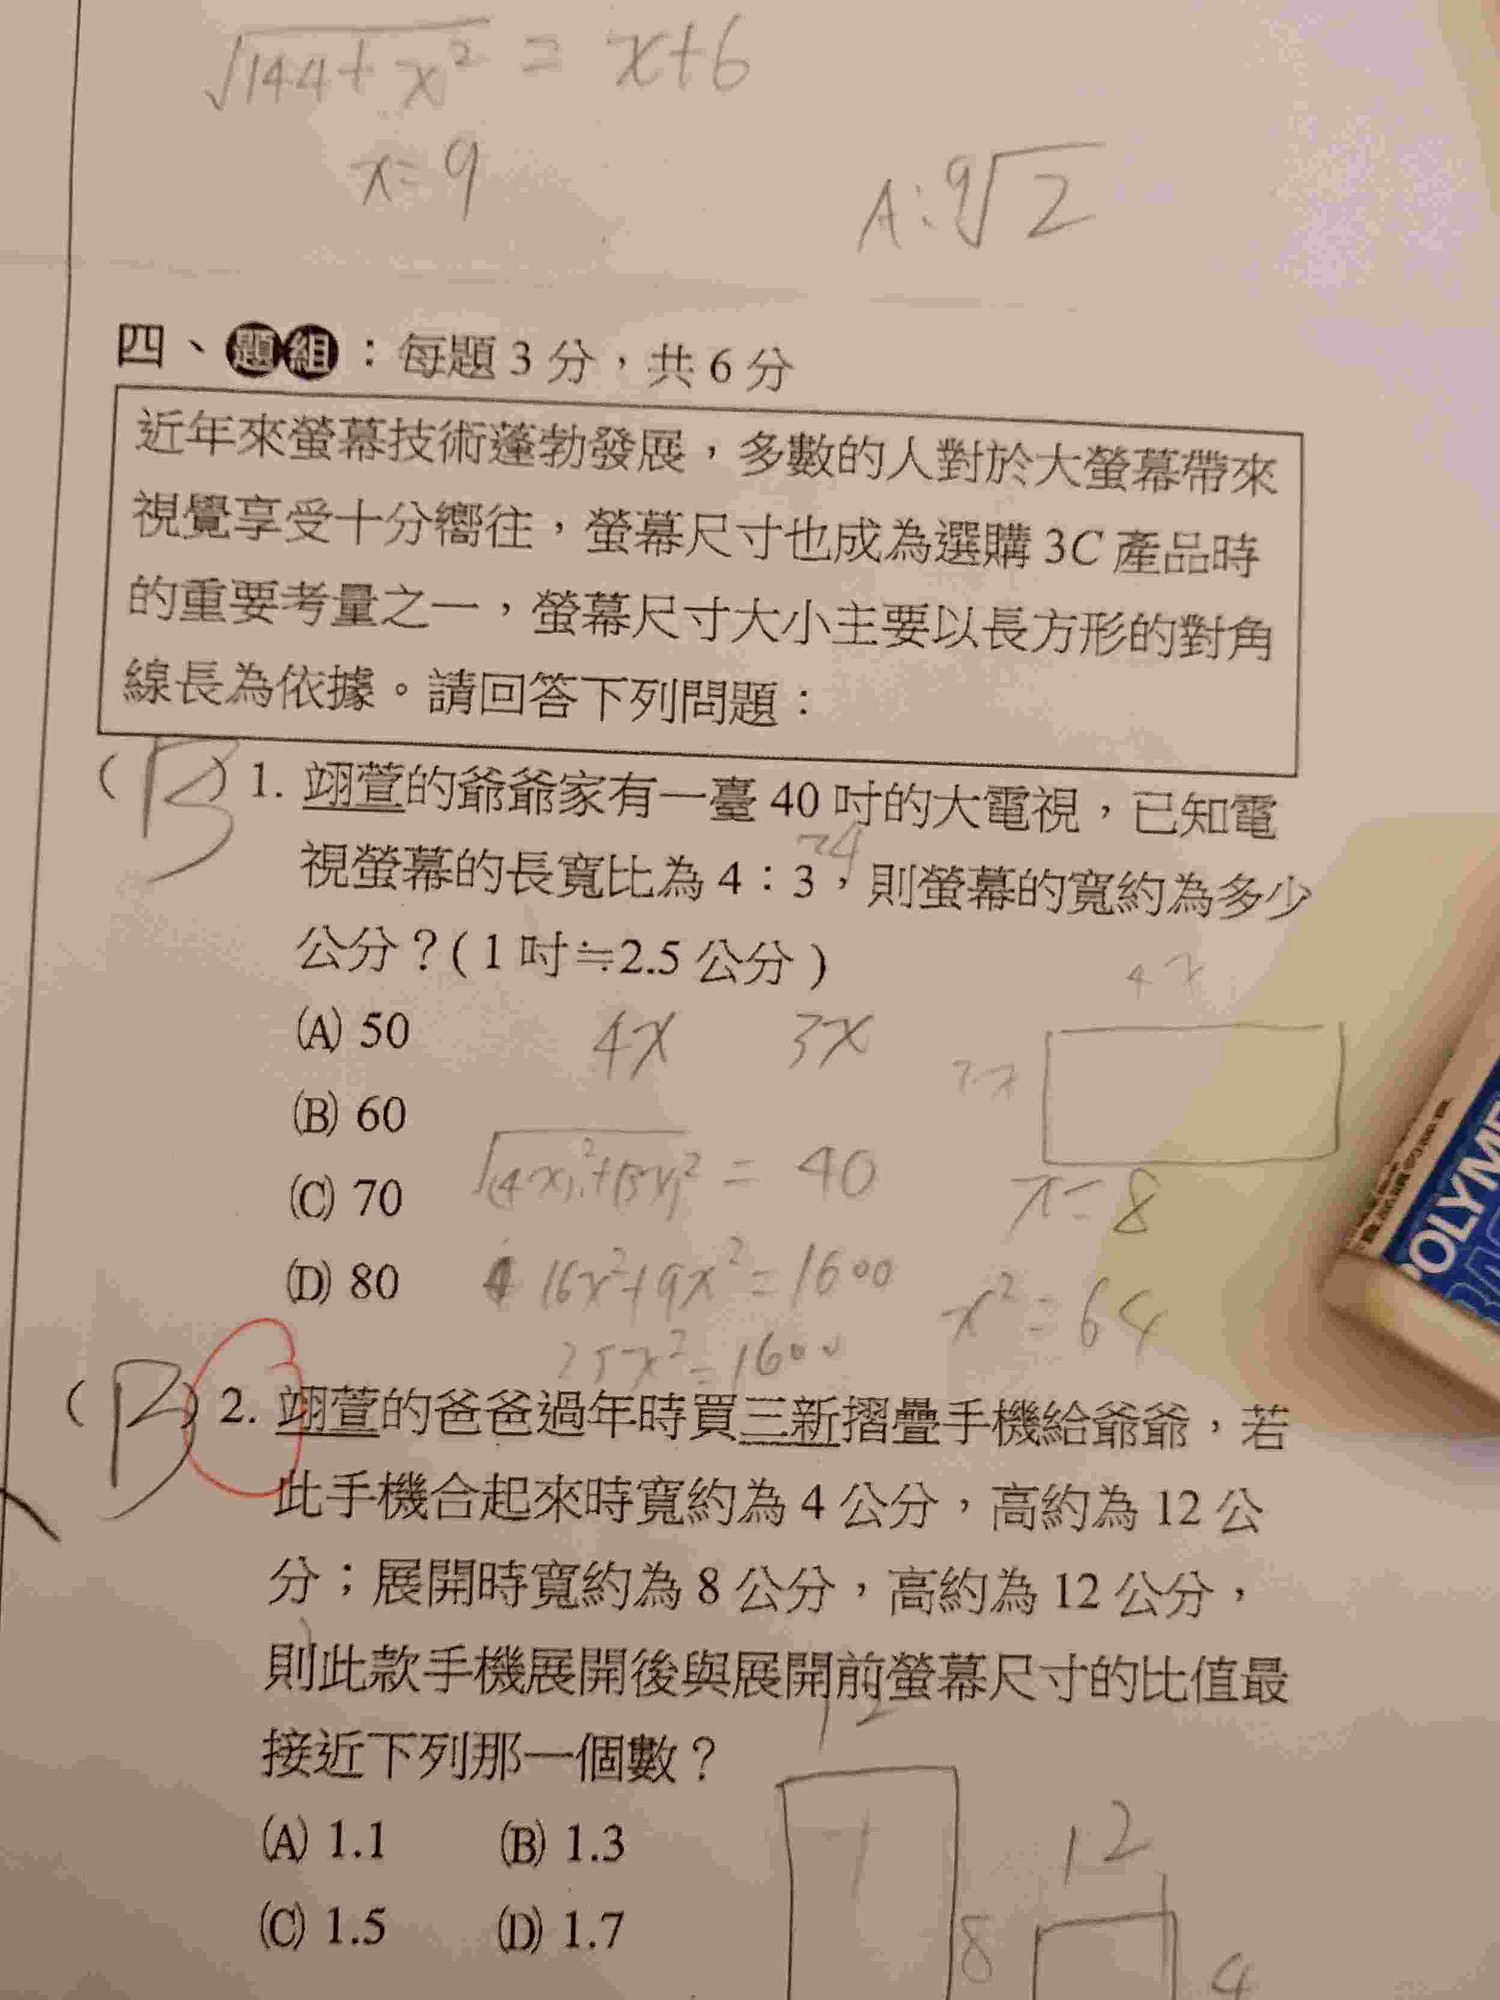 √144+x² = x+6
x=9
A:9√2
四、題組：每題 3 分，共 6 分
近年來螢幕技術蓬勃發展，多數的人對於大螢幕帶來
視覺享受十分嚮往，螢幕尺寸也成為選購 3C 產品時
的重要考量之一，螢幕尺寸大小主要以長方形的對角
線長為依據。請回答下列問題：
(B) 1. 翊萱的爺爺家有一臺 40 吋的大電視，已知電
視螢幕的長寬比為 4：3，則螢幕的寬約為多少
公分？( 1 吋≒2.5 公分 )
4x
(A) 50
4x 3x
3x
(B) 60
√(4x)²+(3x)² = 40
x=8
(C) 70
(D) 80
16x²+9x²=1600
x²=64
25x²=1600
(B) 2. 翊萱的爸爸過年時買三新摺疊手機給爺爺，若
此手機合起來時寬約為 4 公分，高約為 12 公
分；展開時寬約為 8 公分，高約為 12 公分，
則此款手機展開後與展開前螢幕尺寸的比值最
接近下列那一個數？
12
(A) 1.1 (B) 1.3
12
(C) 1.5 (D) 1.7
8
4
POLYME